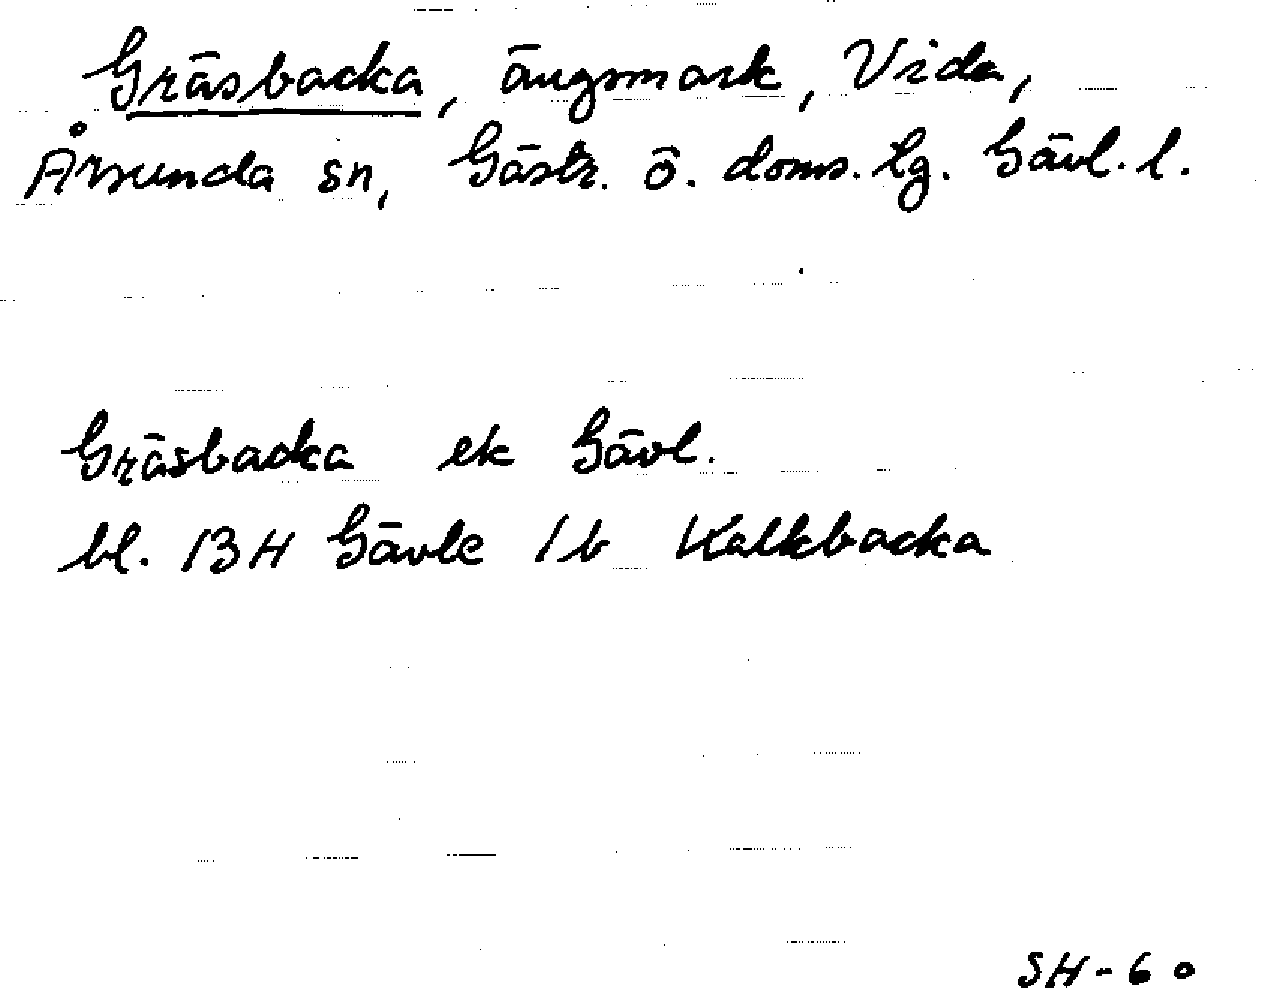 Gräsbacka, ängsmark, Vida,
Årsunda sn, Gästr. ö. doms. tg. Gävl. l.
Gräsbacka ek Gävl.
bl. 13H Gävle 1b Kalkbacka
SH-60